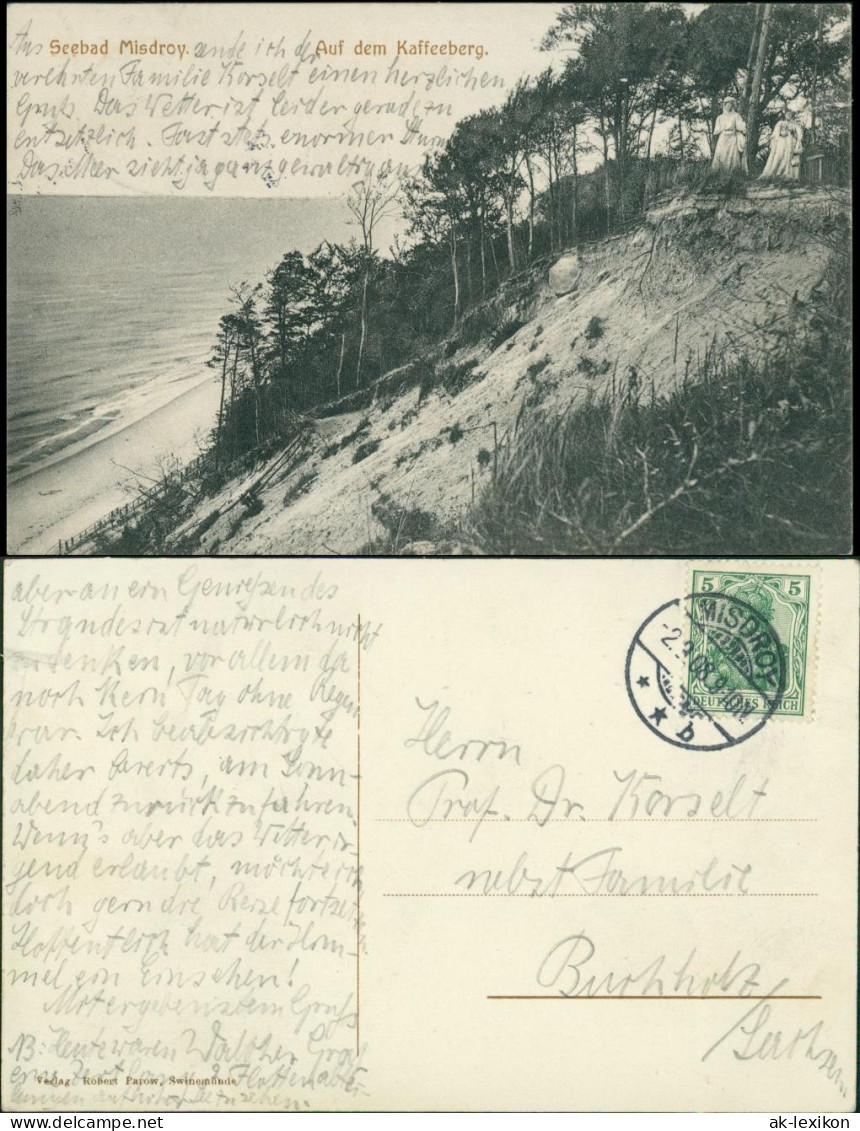 Aus Seebad Misdroy. sende ich der Auf dem Kaffeeberg.
verehrten Familie Korselt einen herzlichen
Gruß. Das Wetter ist leider geradezu
entsetzlich. Fast stets enormer Sturm
Das Meer sieht ja ganz gewaltig aus
aber an ein Genießen des
Strandes ist natürlich nicht
zu denken, vor allem da
noch kein Tag ohne Regen
war. Ich beabsichtige
daher bereits, am Sonn-
abend zurückzufahren.
Wenn's aber das Wetter ir-
gend erlaubt, möchte ich
doch gern die Reise fortsetzen
Hoffentlich hat der Him-
mel ein Einsehen!
Mit ergebenstem Gruß
NB: Heute waren
2 Flotten
Verlag Robert Parow, Swinemünde
5 5
DEUTSCHES REICH
MISDROY
b
Herrn
Prof. Dr. Korselt
nebst Familie
Buchholz
Sachsen
ak-lexikon